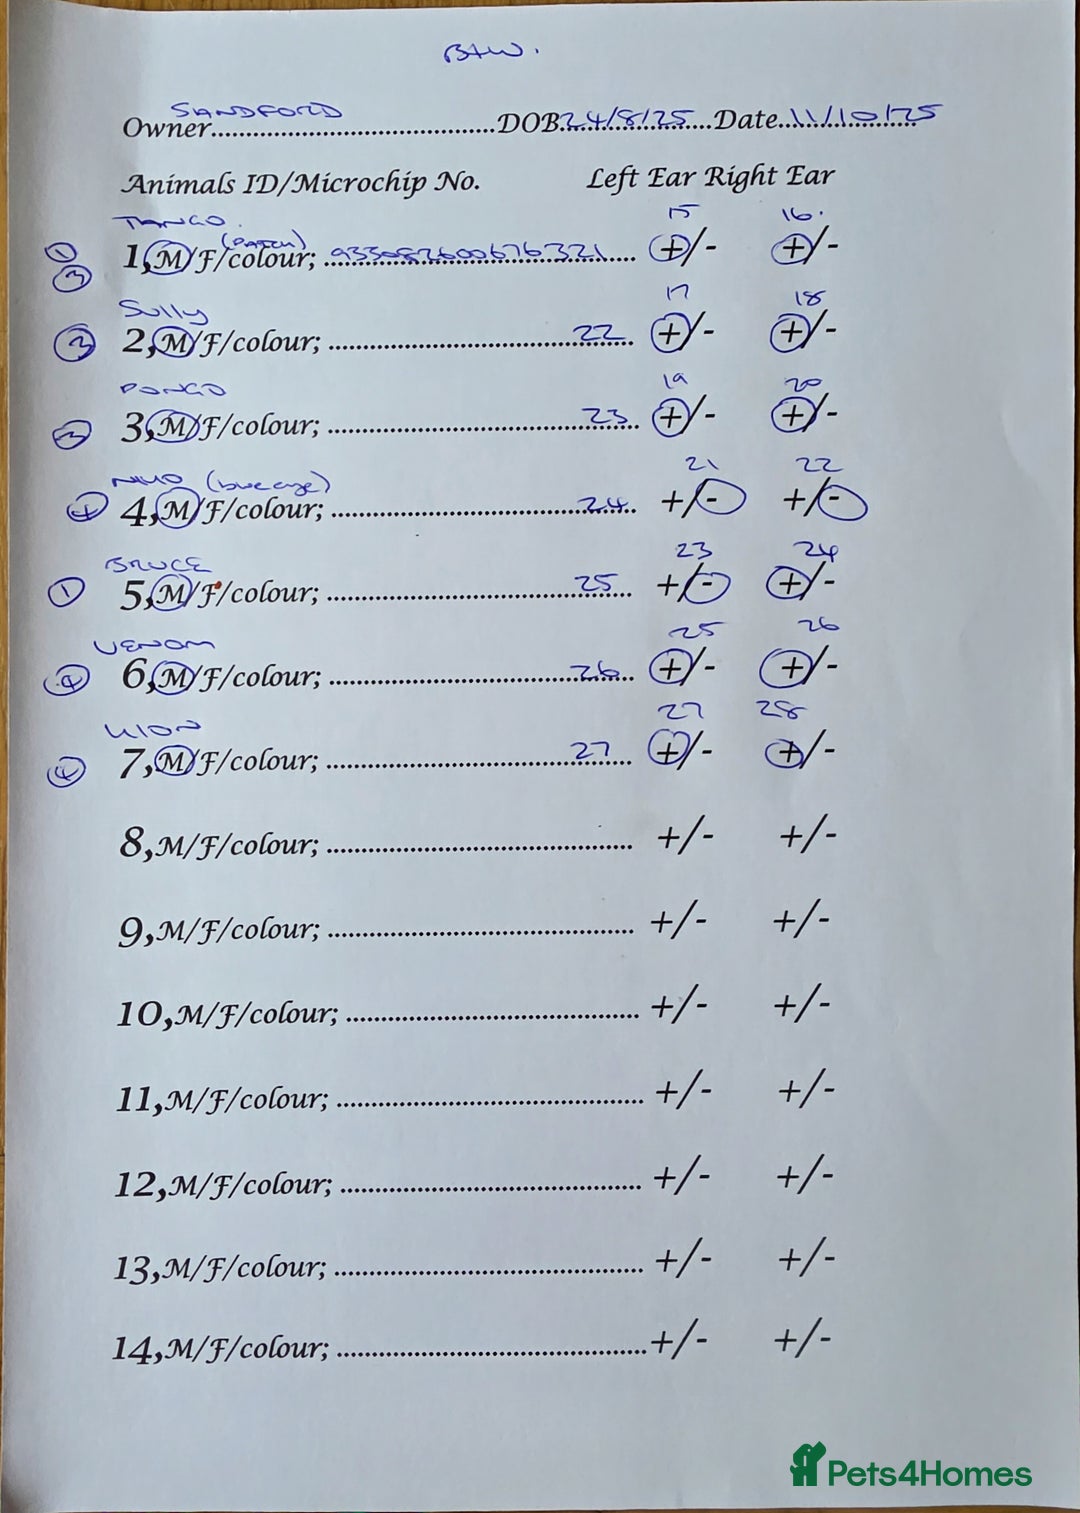 B+W.
SANDFORD
Owner....................................DOB 24/8/25 Date 11/10/25
Animals ID/Microchip No. Left Ear Right Ear
TANGO. 15 16.
① ③ 1, M/F/colour; (PATCH) 933082600676321 +/- +/-
Sully 17 18
③ 2, M/F/colour; ....................................22 +/- +/-
PONGO 19 20
3, M/F/colour; ....................................23 +/- +/-
(blue eye) 21 22
4, M/F/colour; ....................................24 +/- +/-
BRUCE 23 24
① 5, M/F/colour; ....................................25 +/- +/-
VENOM 25 26
6, M/F/colour; ....................................26 +/- +/-
27 28
7, M/F/colour; ....................................27 +/- +/-
8, M/F/colour; .......................................... +/- +/-
9, M/F/colour; .......................................... +/- +/-
10, M/F/colour; ........................................ +/- +/-
11, M/F/colour; .......................................... +/- +/-
12, M/F/colour; ......................................... +/- +/-
13, M/F/colour; .......................................... +/- +/-
14, M/F/colour; .......................................... +/- +/-
Pets4Homes